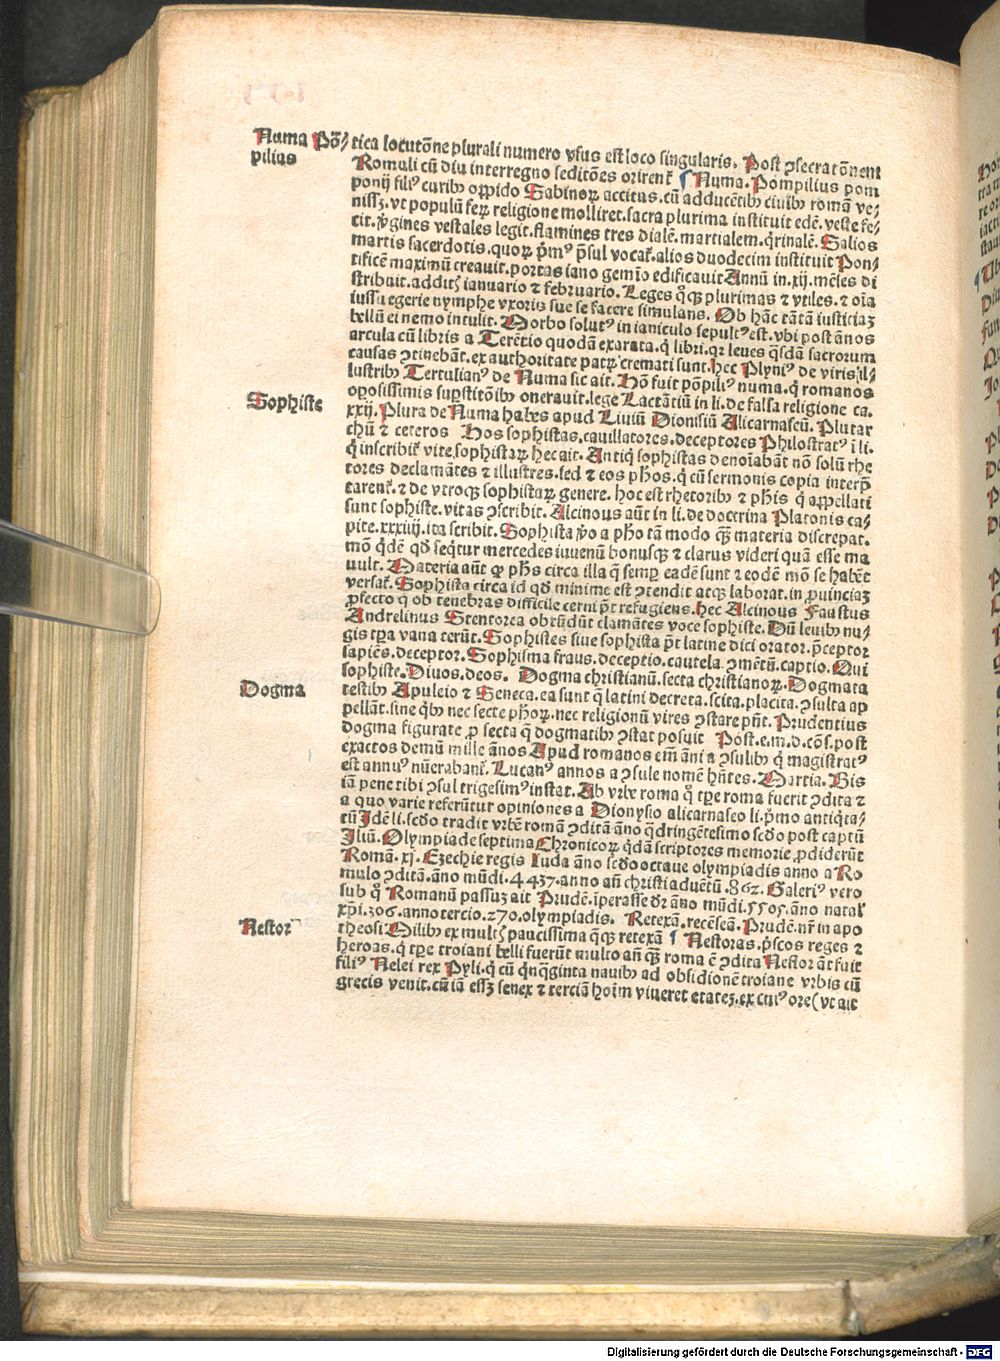 Numa Põ/
pilius
tica locutõne plurali numero vsus est loco singularis. Post ɔsecratõnem
Romuli cũ diu interregno seditões orirent᷑ ¶ Numa. Pompilius pom
ponij filiꝰ curibꝫ oppido Sabinoꝝ accitus. cũ adducẽtibꝫ ciuibꝫ romã ve/
nissꝫ. vt populũ feꝝ religione molliret. sacra plurima instituit edẽ. veste fe/
cit. v̓gines vestales legit. flamines tres dialẽ. martialem. q̇rinalẽ. Salios
martis sacerdotis. quoꝝ p̓mꝰ p̃sul vocat᷑. alios duodecim instituit Pon/
tificẽ maximũ creauit. portas iano gemĩo edificauit Annũ in. xij. mẽses di
stribuit. additꝭ ianuario ⁊ februario. Leges q̊qꝫ plurimas ⁊ vtiles. ⁊ oĩa
iussu egerie nymphe vxoris sue se facere simulans. Ob hãc tãtã iusticiaꝫ
bellũ ei nemo intulit. Morbo solutꝰ in ianiculo sepultꝰ est. vbi post ãnos
arcula cũ libris a Terẽtio quodã exarata. q̇ libri. qꝛ leues q̃sdã sacrorum
causas ɔtinebãt. ex authoritate patꝝ cremati sunt. hec Plyniꝰ de viris il/
lustribꝫ Tertulianꝰ de Numa sic ait. Hõ fuit põpiliꝰ numa. q̇ romanos
oꝑosissimis suꝑstitõibꝫ onerauit. lege Lactãtiũ in li. de falsa religione ca.
xxij. Plura de Numa habes apud Liuiũ Dionisiũ Alicarnaseũ. Plutar
Sophiste
chũ ⁊ ceteros Hos sophistas. cauillatores. deceptores Philostratꝰ ĩ li.
q̇ inscribit᷑ vite sophistaꝝ. hec ait. Antiq̇ sophistas denoĩabãt nõ solũ rhe
tores declamãtes ⁊ illustres. sed ⁊ eos phos. q̇ cũ sermonis copia interp̃
tarent᷑. ⁊ de vtroqꝫ sophistaꝝ genere. hoc est rhetoribꝫ ⁊ phis q̇ appellati
sunt sophiste. vitas ɔscribit. Alcinous aũt in li. de doctrina Platonis ca/
pite. xxxiiij. ita scribit. Sophista v̓o a pho tã modo q̃ꝫ materia discrepat.
mõ q̇dẽ qꝺ seq̇tur mercedes iuuenũ bonusqꝫ ⁊ clarus videri quã esse ma
uult. Materia aũt qꝛ phs circa illa q̃ semꝑ eadẽ sunt ⁊ eodẽ mõ se habẽt
versat᷑. Sophista circa id qꝺ minime est ɔtendit atqꝫ laborat. in ꝓuinciaꝫ
ꝓfecto q̃ ob tenebras difficile cerni põt refugiens. hec Alcinous Faustus
Andrelinus Stentorea obtũdũt clamãtes voce sophiste. Dũ leuibꝫ nu/
gis tꝑa vana terũt. Sophistes siue sophista põt latine dici orator. p̃ceptor
sapiẽs. deceptor. Sophisma fraus. deceptio. cautela ɔmẽtũ. captio. Qui
sophiste. Diuos. deos. Dogma christianũ. secta christianoꝝ. Dogmata
Dogma
testibꝫ Apuleio ⁊ Seneca. ea sunt q̃ latini decreta. scita. placita. ɔsulta ap
pellãt. sine q̇bꝫ nec secte phoꝝ. nec religionũ vires ɔstare pñt. Prudentius
dogma figurate ꝓ secta q̃ dogmatibꝫ ɔstat posuit Post. e. m. d. cõs. post
exactos demũ mille ãnos Apud romanos em̃ ãni a ɔsulibꝫ q̇ magistratꝰ
est annuꝰ nũerabant᷑. Lucanꝰ annos a ɔsule nomẽ hñtes. Martia. Bis
iã pene tibi ɔsul trigesimꝰ instat. Ab vrbe roma q̊ tꝑe roma fuerit ɔdita ⁊
a quo varie referũtur opiniones a Dionysio alicarnaseo li. p̓mo antiqta/
tũ Idẽ li. scꝺo tradit vrbẽ romã ɔditã ãno q̃dringẽtesimo scꝺo post captũ
Iliũ. Olympiade septima Chronicoꝝ q̇dã scriptores memorie ꝓdiderũt
Romã. xj. Ezechie regis Iuda ãno scꝺo octaue olympiadis anno a Ro
mulo ɔditã. ãno mũdi. 4437. anno añ christi aduẽtũ. 862. Galeriꝰ vero
sub q̊ Romanũ passuꝫ ait Prudẽ. iperasse dr̃ ãno mũdi. 5505. ãno natal᷑
xp̃i. 306. anno tercio. 270. olympiadis. Retexã. recẽseã. Prudẽ. nr̃ in apo
theosi Milibꝫ ex multꝭ paucissima q̃qꝫ retexã ¶ Nestoras. p̓scos reges ⁊
Nestor
heroas. q̇ tꝑe troiani belli fuerũt multo añ q̃ꝫ roma ẽ ɔdita Nestor aũt fuit
filiꝰ Nelei rex Pyli. q̇ cũ q̇nq̃ginta nauibꝫ ad obsidionẽ troiane vrbis cũ
grecis venit. cũ iã essꝫ senex ⁊ terciã hoĩm viueret etateꝫ. ex cuiꝰ ore (vt ait
Digitalisierung gefördert durch die Deutsche Forschungsgemeinschaft - DFG